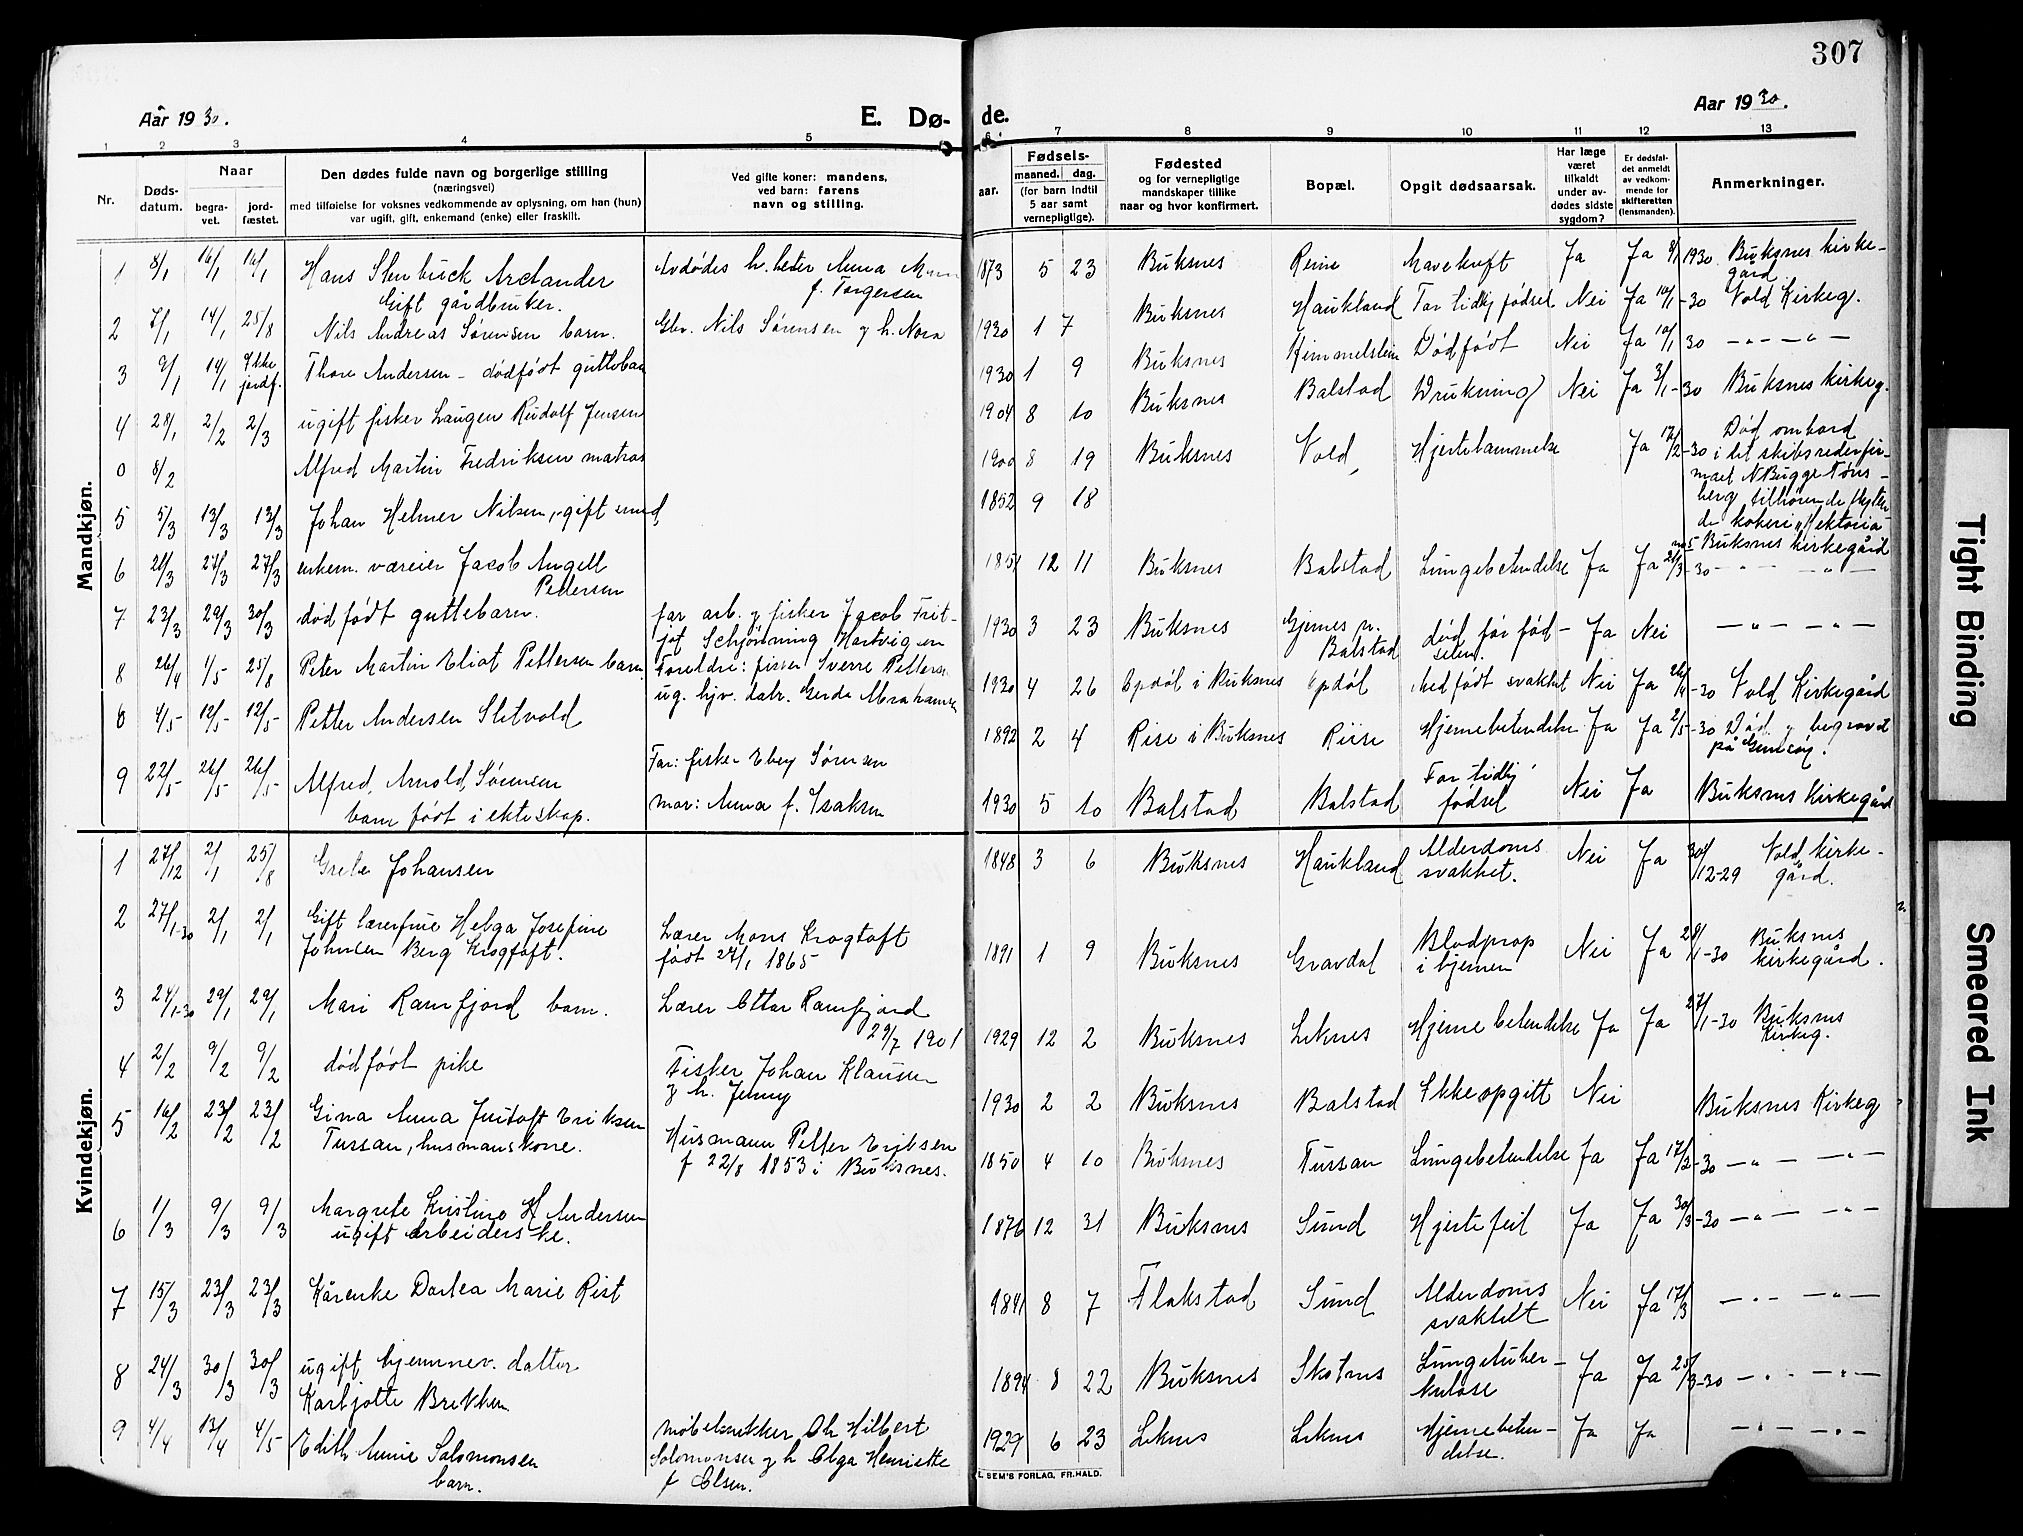 307
Aar 1930.
E. Døde.
Aar 1930.
1 2 3 4 5 6 7 8 9 10 11 12 13
Nr.
Døds-
datum.
Naar
begra-
vet.
jord-
fæstet.
Den dødes fulde navn og borgerlige stilling
(næringsvei)
med tilføielse for voksnes vedkommende av oplysning, om han (hun)
var ugift, gift, enkemand (enke) eller fraskilt.
Ved gifte koner: mandens,
ved barn: farens
navn og stilling.
aar.
Fødsels-
maaned. dag.
(for barn indtil
5 aar samt
vernepligtige).
Fødested
og for vernepligtige
mandskaper tillike
naar og hvor konfirmert.
Bopæl.
Opgit dødsaarsak.
Har læge
været
tilkaldt
under av-
dødes sidste
sygdom?
Er dødsfal-
det anmeldt
av vedkom-
mende for
skifteretten
(lensmanden).
Anmerkninger.
Mandkjøn.
1 8/1 16/1 16/1 Hans Stenbuck Arctander Avdødes h. heter Anna 1873 5 23 Buksnes Reine Mavekreft Ja Ja 8/1 1930 Buksnes kirke-
Gift gårdbruker. f. Torgersen gård
2 7/1 14/1 25/8 Nils Andreas Sørensen barn. Gbr. Nils Sørensen og h. Nora 1930 1 7 Buksnes Haukland For tidlig fødsel Nei Ja 10/1 -30 Vold Kirkeg.
3 9/1 14/1 Ikke
jordf. Thore Andersen - dødfødt guttebarn 1930 1 9 Buksnes Himmelstein Dødfødt Nei Ja 10/1 30 — " — " —
4 28/1 2/2 2/3 ugift fisker Laugen Rudolf Jensen 1904 8 10 Buksnes Balstad Drukning Nei Ja 3/1 -30 Buksnes kirkeg.
0 8/2 Alfred Martin Fredriksen matros 1900 8 19 Buksnes Vold Hjertelammelse Ja 12/2 -30 Død ombord
i det skibsrederfir-
maet N Bugge Tøns-
berg tilhørende flyten-
de kokeri "Hektoria"
5 5/3 13/3 13/3 Johan Helmer Nilsen, gift 1852 9 18 no 5 Buksnes kirkegård
6 21/3 27/3 27/3 enkem. væreier Jacob Angell
Pedersen 1851 12 11 Buksnes Balstad Lungebetendelse Ja Ja 21/3 -30 — " — " —
7 23/3 29/3 30/3 dødfødt guttebarn. far arb. og fisker Jacob Frit-
jof Schjønning Hartvigsen 1930 3 23 Buksnes Gjernes n.
Balstad død før fød-
selen. Ja Nei — " — " —
8 26/4 1/5 25/8 Peter Martin Eliot Pettersen barn Foreldre: fisker Sverre Petters
ug. hjv. datr. Gerda Abrahamsen 1930 4 26 Opdøl i Buksnes Opdøl Medfødt svakhet Nei Ja 26/4 -30 Vold Kirkegård
0 4/5- 12/5- 12/5- Petter Andersen Sletvold 1892 2 4 Rise i Buksnes Riise Hjernebetendelse Ja Ja 2/5 -30 Død og begravet
på Gimsøy.
9 22/5- 26/5- 26/5- Alfred Arnold Sørensen
barn født i ekteskap. Far: fisker Ebey Sørensen
mor: Anna f. Isaksen 1930 5 10 Balstad Balstad For tidlig
fødsel Nei Ja Buksnes Kirkegård
Kvindekjøn.
1 27/12 2/1 25/8 Grete Johansen 1848 3 6 Buksnes Haukland Alderdoms
svakhet. Nei Ja 30/12-29 Vold kirke-
gård.
2 27/1-30 2/1 2/1 Gift lærerfrue Helga Josefine
Johnsen Berg Krogtoft. Lærer Mons Krogtoft
født 27/1 1865 1891 1 9 Buksnes Gravdal Blodprop
i hjernen Nei Ja 28/1-30 Buksnes
kirkegård.
3 24/1-30 29/1 29/1 Mari Ramfjord barn. Lærer Ottar Ramfjord
29/7 1901 1929 12 2 Buksnes Leknes Hjernebetendelse Ja Ja 27/1-30 Buksnes
Kirkeg.
4 2/2 9/2 9/2 dødfødt pike Fisker Johan Klausen
og h. Jenny 1930 2 2 Buksnes Balstad Ikke opgitt Nei Buksnes Kirkeg
5 16/2 23/2 23/2 Gina Anna Justoft Eriksen
Tussan, husmanskone. Husmann Petter Eriksen
f 22/8 1853 i Buksnes. 1850 4 10 Buksnes Tussan Lungebetendelse Ja Ja 17/2-30 — " — " —
6 1/3 9/3 9/3 Margrete Kristine H Andersen
ugift arbeiderske. 1876 12 31 Buksnes Sund Hjertefeil Ja Ja 30/3-30 — " — " —
7 15/3 23/3 23/3 Kårenke Dortea Marie Rist 1841 8 7 Flakstad Sund Alderdoms
svakhet Nei Ja 17/3 — " — " —
8 24/3 30/3 30/3 ugift hjemmev. datter
Karbjotte Brekken 1894 8 22 Buksnes Skotnes Lungetuber-
kulose Ja Ja 25/3-30 — " — " —
9 4/4 13/4 4/5 Edith Annie Salomonsen
barn. Møbelsnekker Ch Hilbert
Solomonsen og h Olga Henriette
f Olsen. 1929 6 23 Leknes Leknes Hjernebeten-
delse. Ja Ja — " — " —
SEM'S FORLAG, FR.HALD.
Tight Binding
Smeared Ink